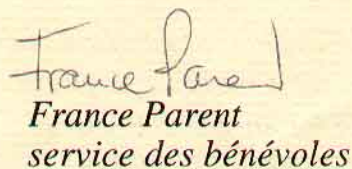 France Parent
France Parent
service des bénévoles